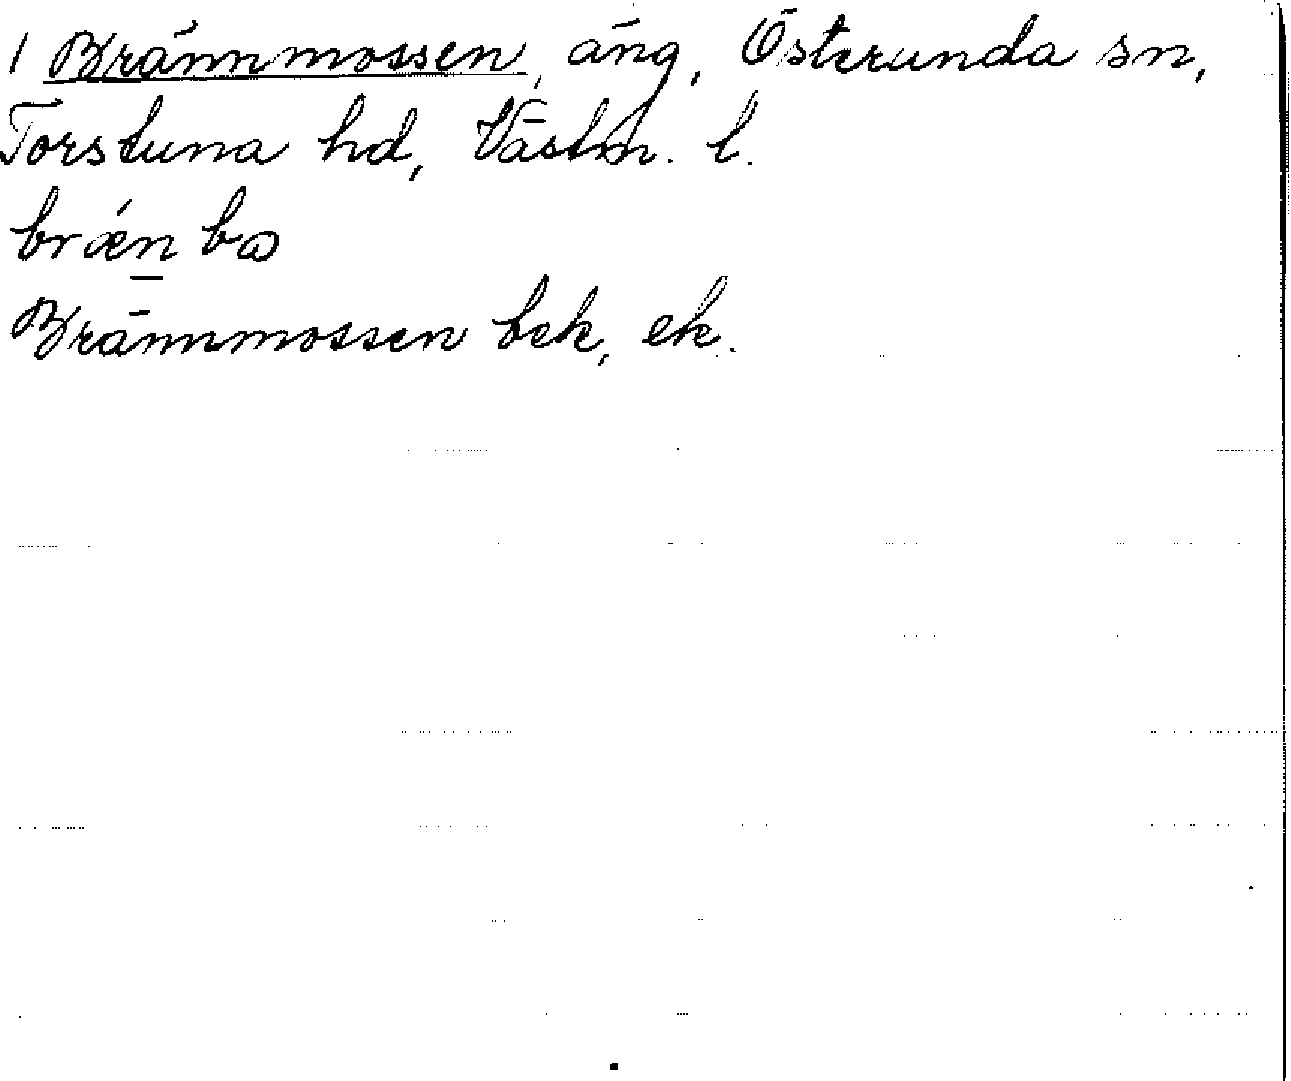 1 Brännmossen, äng, Österunda sn,
Torstuna hd, Västm. l.
brǽn bω
Brännmossen bek, ek.